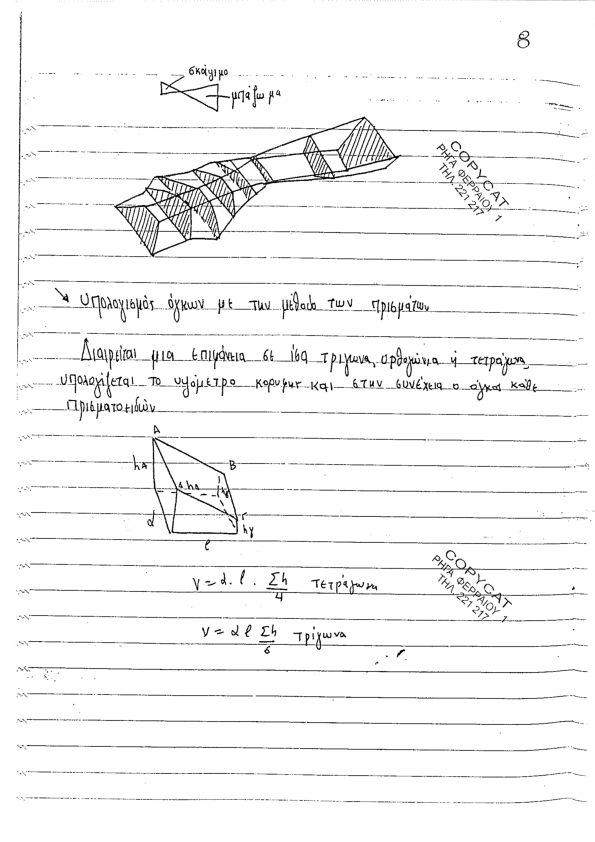 8
σκάψιμο
μπάζωμα
COPYCAT
ΡΗΓΑ ΦΕΡΡΑΙΟΥ 1
ΤΗΛ. 221 217
Υπολογισμός όγκων με την μέθοδο των πρισμάτων
Διαιρείται μια επιφάνεια σε ίσα τρίγωνα, ορθογώνια ή τετράγωνα,
υπολογίζεται το υψόμετρο κορυφής και στην συνέχεια ο όγκος κάθε
πρισματοειδών
A
hA
B
Γ
hγ
d
l
V = d. l. Σh/4 τετράγωνα
COPYCAT
ΡΗΓΑ ΦΕΡΡΑΙΟΥ 1
ΤΗΛ. 221 217
V = d l Σh/6 τρίγωνα